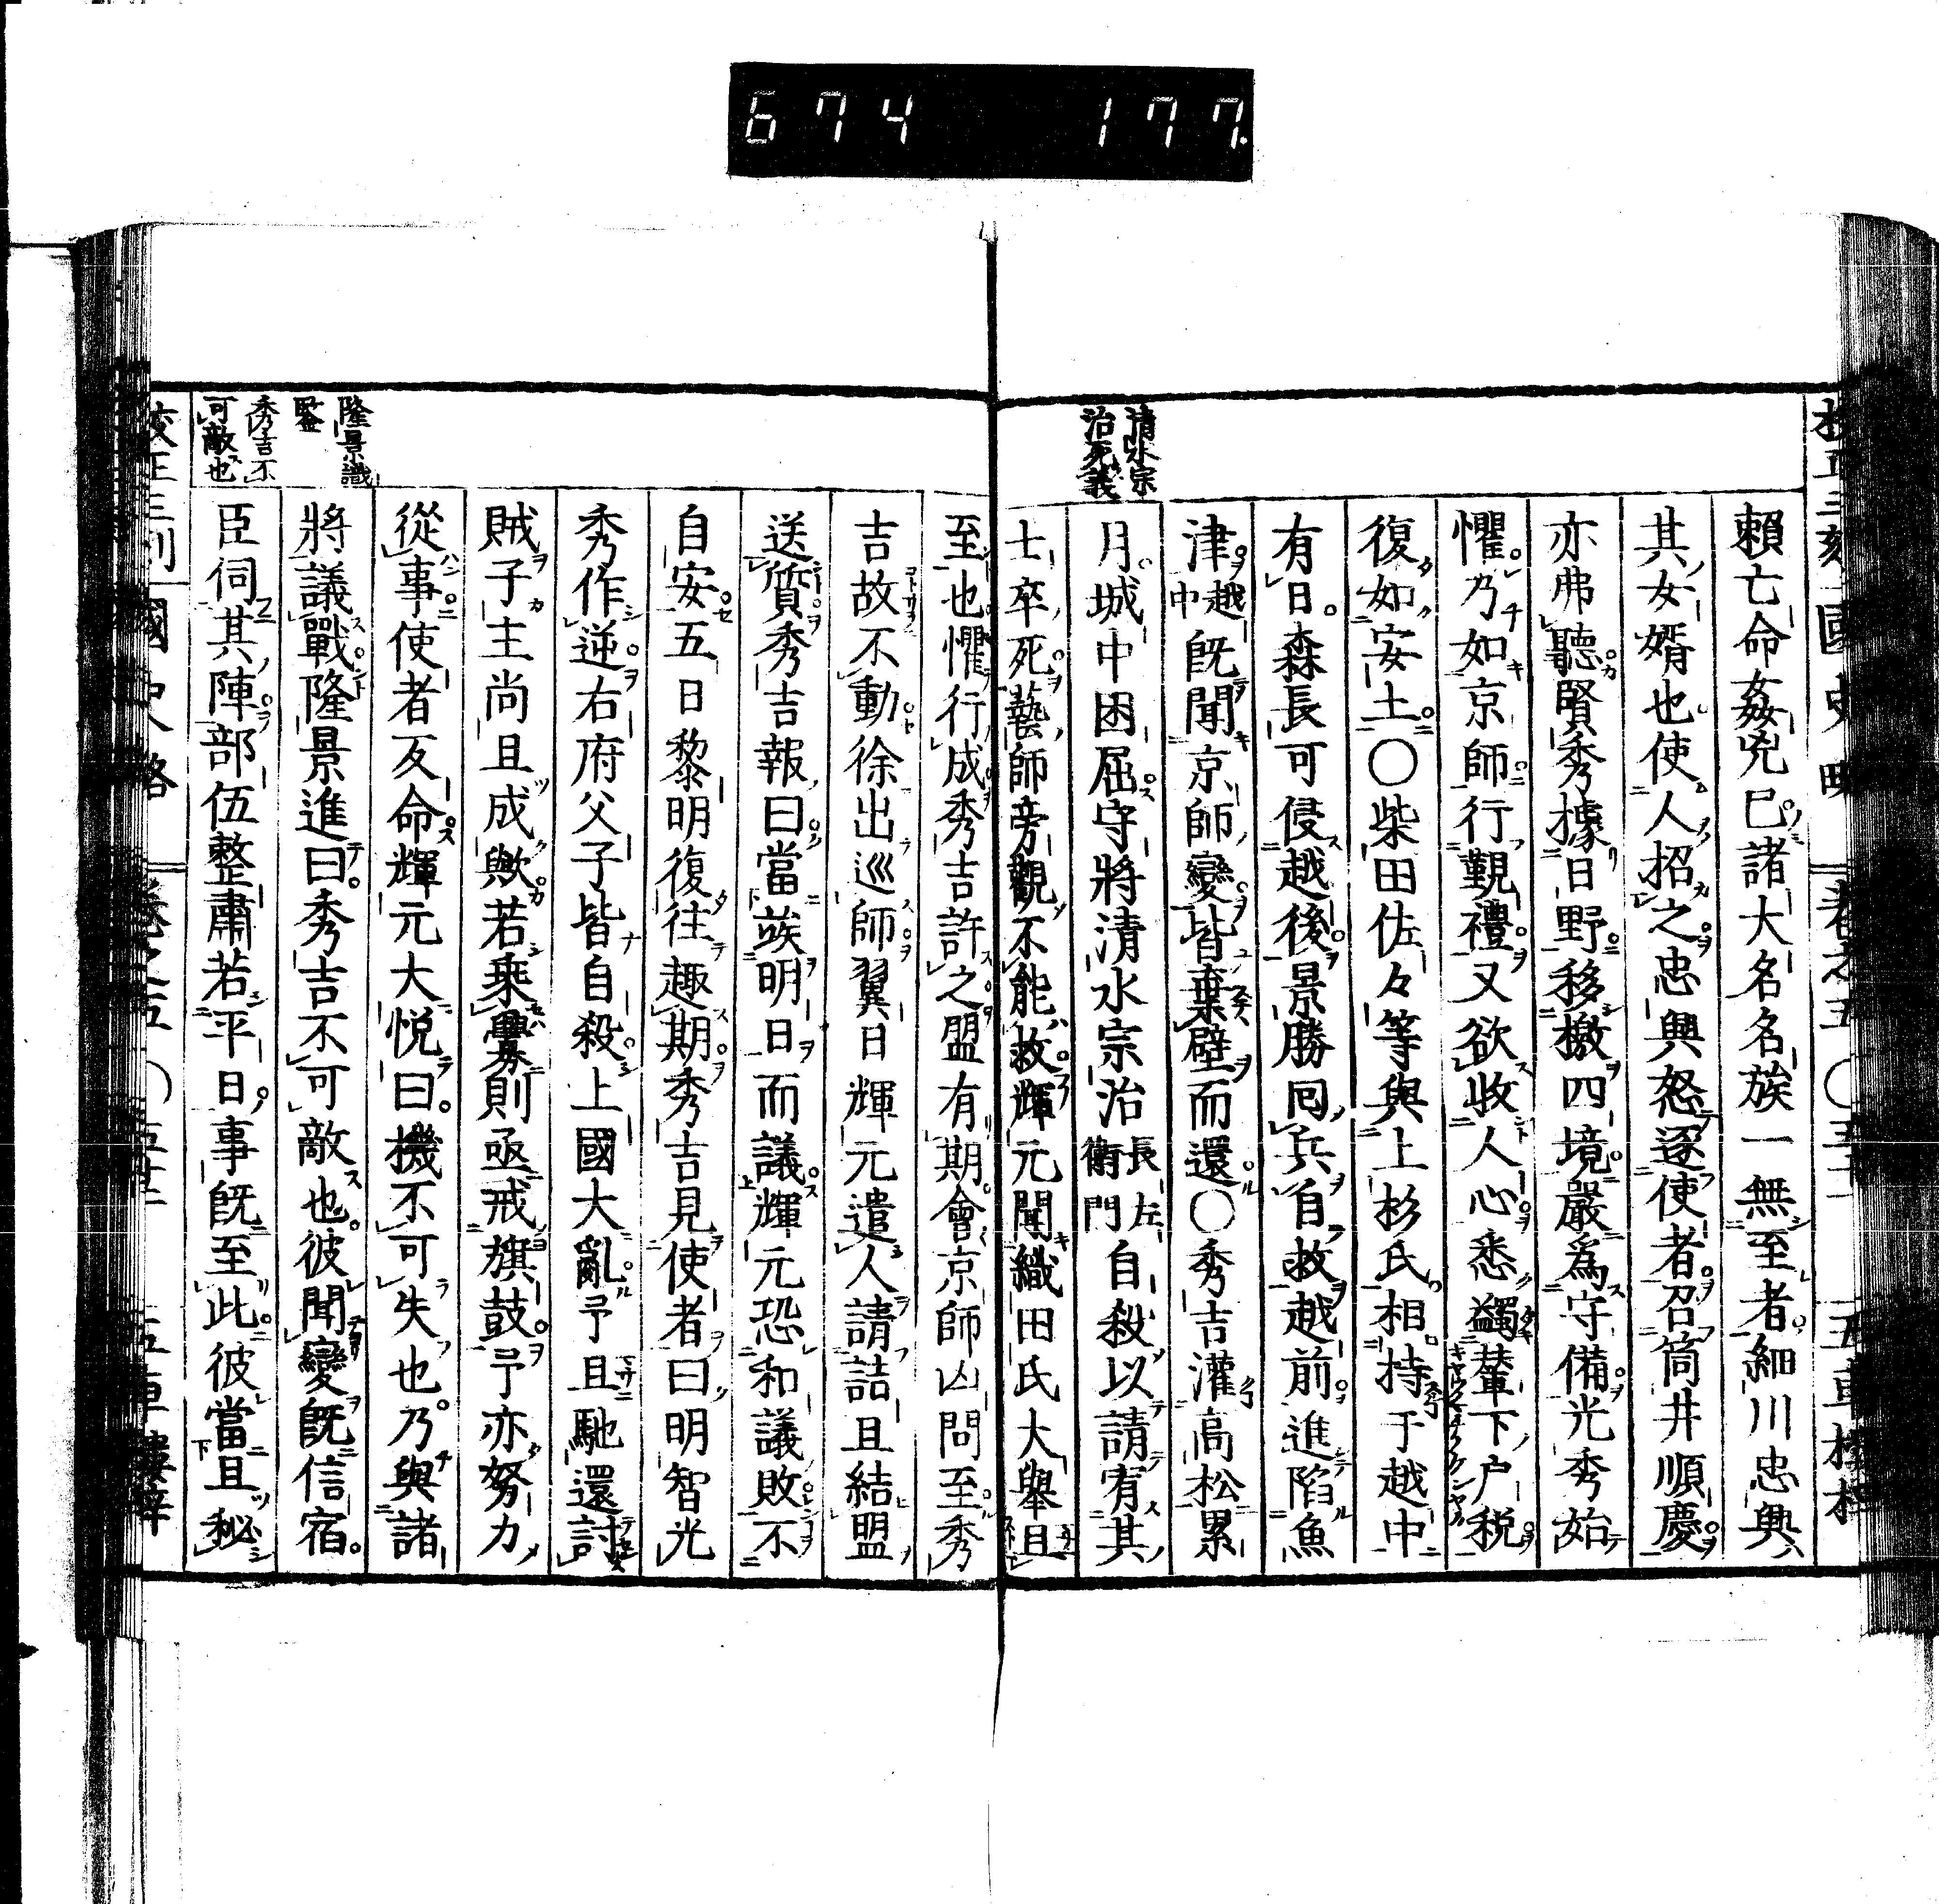 674 177.
清水宗
治死義
頼亡命姦兇已諸大名名族一無至者細川忠興
其女婿也使人招之忠興怒逐使者召筒井順慶
亦弗聽賢秀據日野移檄四境嚴爲守備光秀始
懼乃如京師行覲禮又欲收人心悉蠲輦下戸税
復如安土〇柴田佐々等與上杉氏相持于越中
有日森長可侵越後景勝囘兵自救越前進陷魚
津越中既聞京師變皆棄壁而還〇秀吉灌高松累
月城中困屈守將清水宗治長左衛門自殺以請宥其
士卒死藝師旁觀不能救輝元聞織田氏大舉且
至也懼行成秀吉許之盟有期會京師凶問至秀
吉故不動徐出巡師翼日輝元遣人請詰且結盟
送質秀吉報曰當竢明日而議輝元恐和議敗不
自安五日黎明復往趣期秀吉見使者曰明智光
秀作逆右府父子皆自殺上國大亂予且馳還討
賊子主尚且成歟若乘釁則亟戒旗鼓予亦努力
從事使者反命輝元大悦曰機不可失也乃與諸
將議戰隆景進曰秀吉不可敵也彼聞變既信宿
臣伺其陣部伍整肅若平日事既至此彼當且秘
隆景識
鑒
秀吉不
可敵也